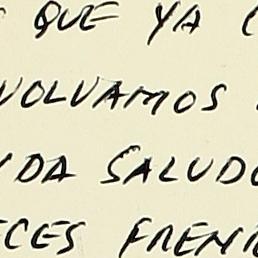 QUE YA
VOLVAMOS
DA SALUDO
CES FREN